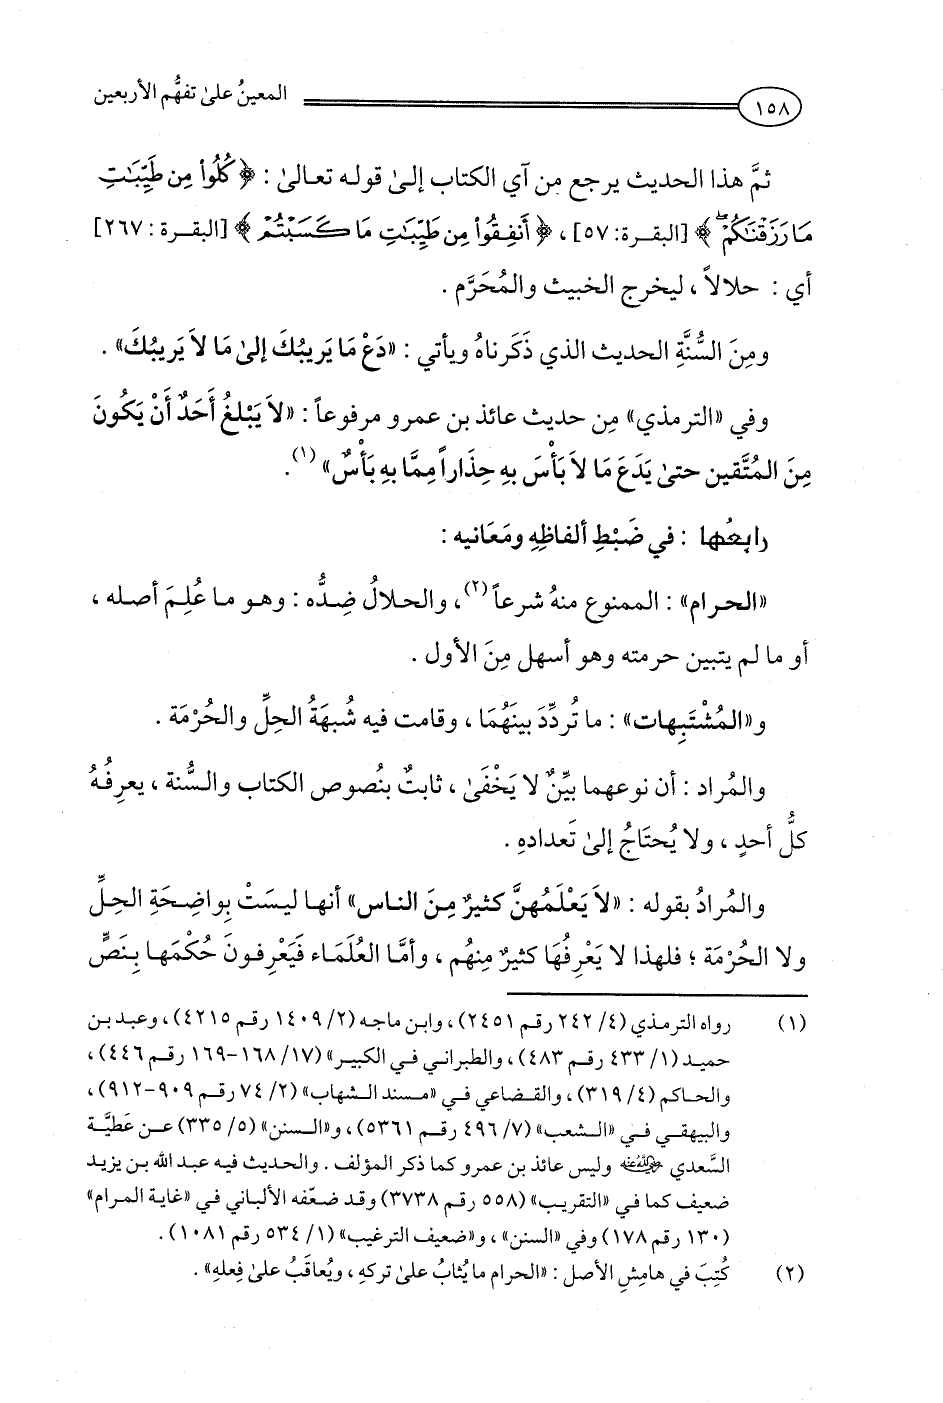 ١٥٨ المعينُ على تفهُّم الأربعين
ثمَّ هذا الحديث يرجع من آي الكتاب إلىٰ قوله تعالىٰ : ﴿ كُلُوا۟ مِن طَيِّبَٰتِ
مَا رَزَقْنَٰكُمْ ۖ ﴾ [البقرة: ٥٧] ، ﴿ أَنفِقُوا۟ مِن طَيِّبَٰتِ مَا كَسَبْتُمْ ﴾ [البقرة : ٢٦٧]
أي : حلالاً ، ليخرج الخبيث والمُحَرَّم .
ومِنَ السُّنَّةِ الحديث الذي ذَكَرناهُ ويأتي : «دَعْ مَا يَريبُكَ إلىٰ مَا لاَ يَريبُكَ» .
وفي «الترمذي» مِن حديث عائذ بن عمرو مرفوعاً : «لاَ يَبْلغُ أَحَدٌ أَنْ يَكُونَ
مِنَ المُتَّقين حتىٰ يَدَعَ مَا لاَ بَأْسَ بِهِ حِذَاراً مِمَّا بِهِ بَأْسٌ» (١).
رابعُها : في ضَبْطِ ألفاظِهِ ومَعَانيه :
«الحرام» : الممنوع منهُ شرعاً (٢) ، والحلالُ ضِدُّه : وهو ما عُلِمَ أصله ،
أو ما لم يتبين حرمته وهو أسهل مِنَ الأول .
و«المُشْتَبِهات» : ما تُردِّدَ بينَهُمَا ، وقامت فيه شُبهَةُ الحِلِّ والحُرْمَة .
والمُراد : أن نوعهما بيِّنٌ لا يَخْفَىٰ ، ثابتٌ بنُصوص الكتاب والسُّنة ، يعرِفُهُ
كلُّ أحدٍ ، ولا يُحتَاجُ إلىٰ تَعدادهِ .
والمُرادُ بقوله : «لاَ يَعْلَمُهنَّ كثيرٌ مِنَ الناس» أنها ليسَتْ بِواضِحَةِ الحِلِّ
ولا الحُرْمَة ؛ فلهذا لا يَعْرِفُهَا كثيرٌ مِنهُم ، وأمَّا العُلَمَاء فَيَعْرِفونَ حُكْمَها بِنَصٍّ
(١) رواه الترمذي (٤/ ٢٤٢ رقم ٢٤٥١) ، وابن ماجه (٢/ ١٤٠٩ رقم ٤٢١٥) ، وعبد بن
حميد (١/ ٤٣٣ رقم ٤٨٣) ، والطبراني في الكبير» (١٧/ ١٦٨-١٦٩ رقم ٤٤٦) ،
والحاكم (٤/ ٣١٩) ، والقضاعي في «مسند الشهاب» (٢/ ٧٤ رقم ٩٠٩-٩١٢) ،
والبيهقي في «الشعب» (٧/ ٤٩٦ رقم ٥٣٦١) ، و«السنن» (٥/ ٣٣٥) عن عَطيَّة
السَّعدي رضي الله عنه وليس عائذ بن عمرو كما ذكر المؤلف . والحديث فيه عبد الله بن يزيد
ضعيف كما في «التقريب» (٥٥٨ رقم ٣٧٣٨) وقد ضعّفه الألباني في «غاية المرام»
(١٣٠ رقم ١٧٨) وفي «السنن» ، و«ضعيف الترغيب» (١/ ٥٣٤ رقم ١٠٨١) .
(٢) كُتِبَ في هامِشِ الأصل : «الحرام ما يُثابُ علىٰ تركهِ ، ويُعاقَبُ علىٰ فِعلهِ» .